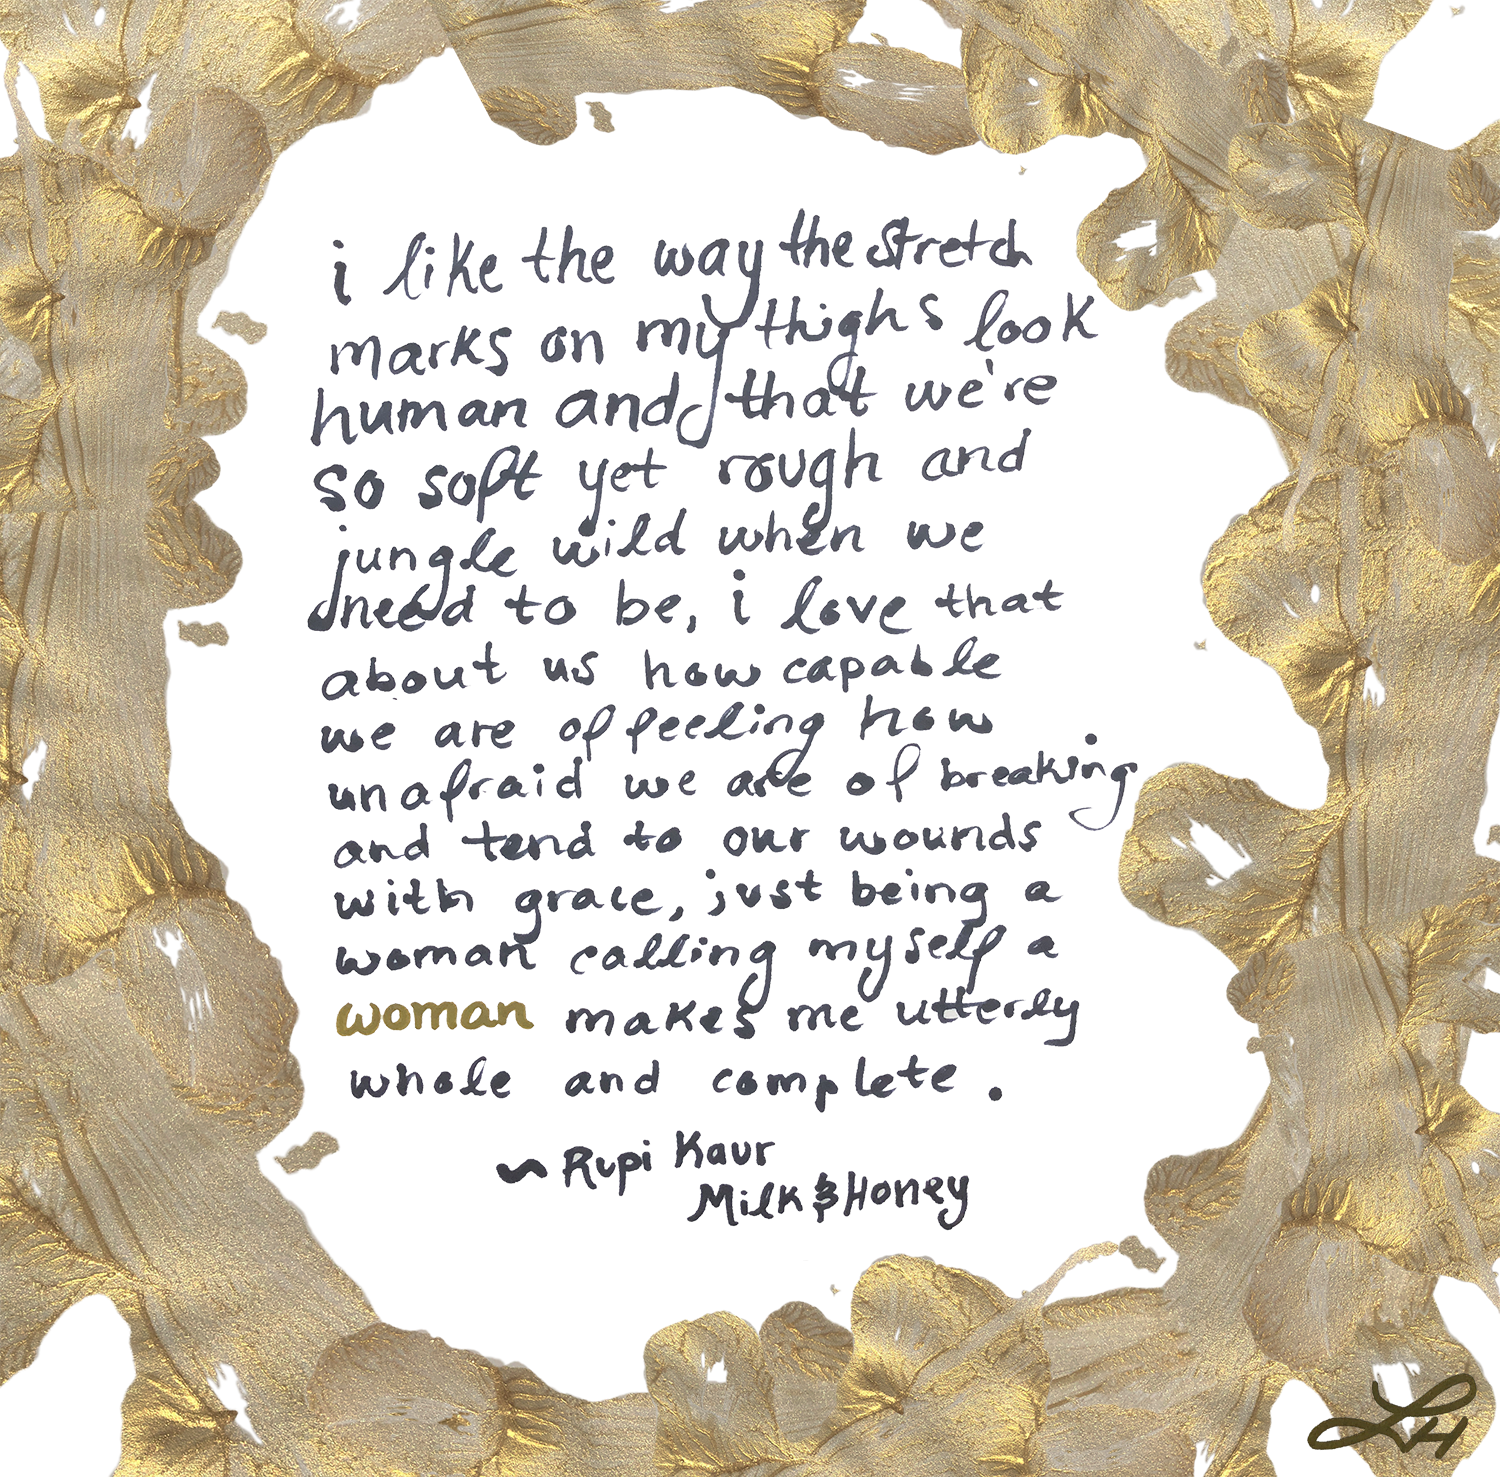 i like the way the stretch
marks on my thighs look
human and that we're
so soft yet rough and
jungle wild when we
need to be, i love that
about us how capable
we are of feeling how
unafraid we are of breaking
and tend to our wounds
with grace, just being a
woman calling myself a
woman makes me utterly
whole and complete.
~ Rupi Kaur
Milk & Honey
LH